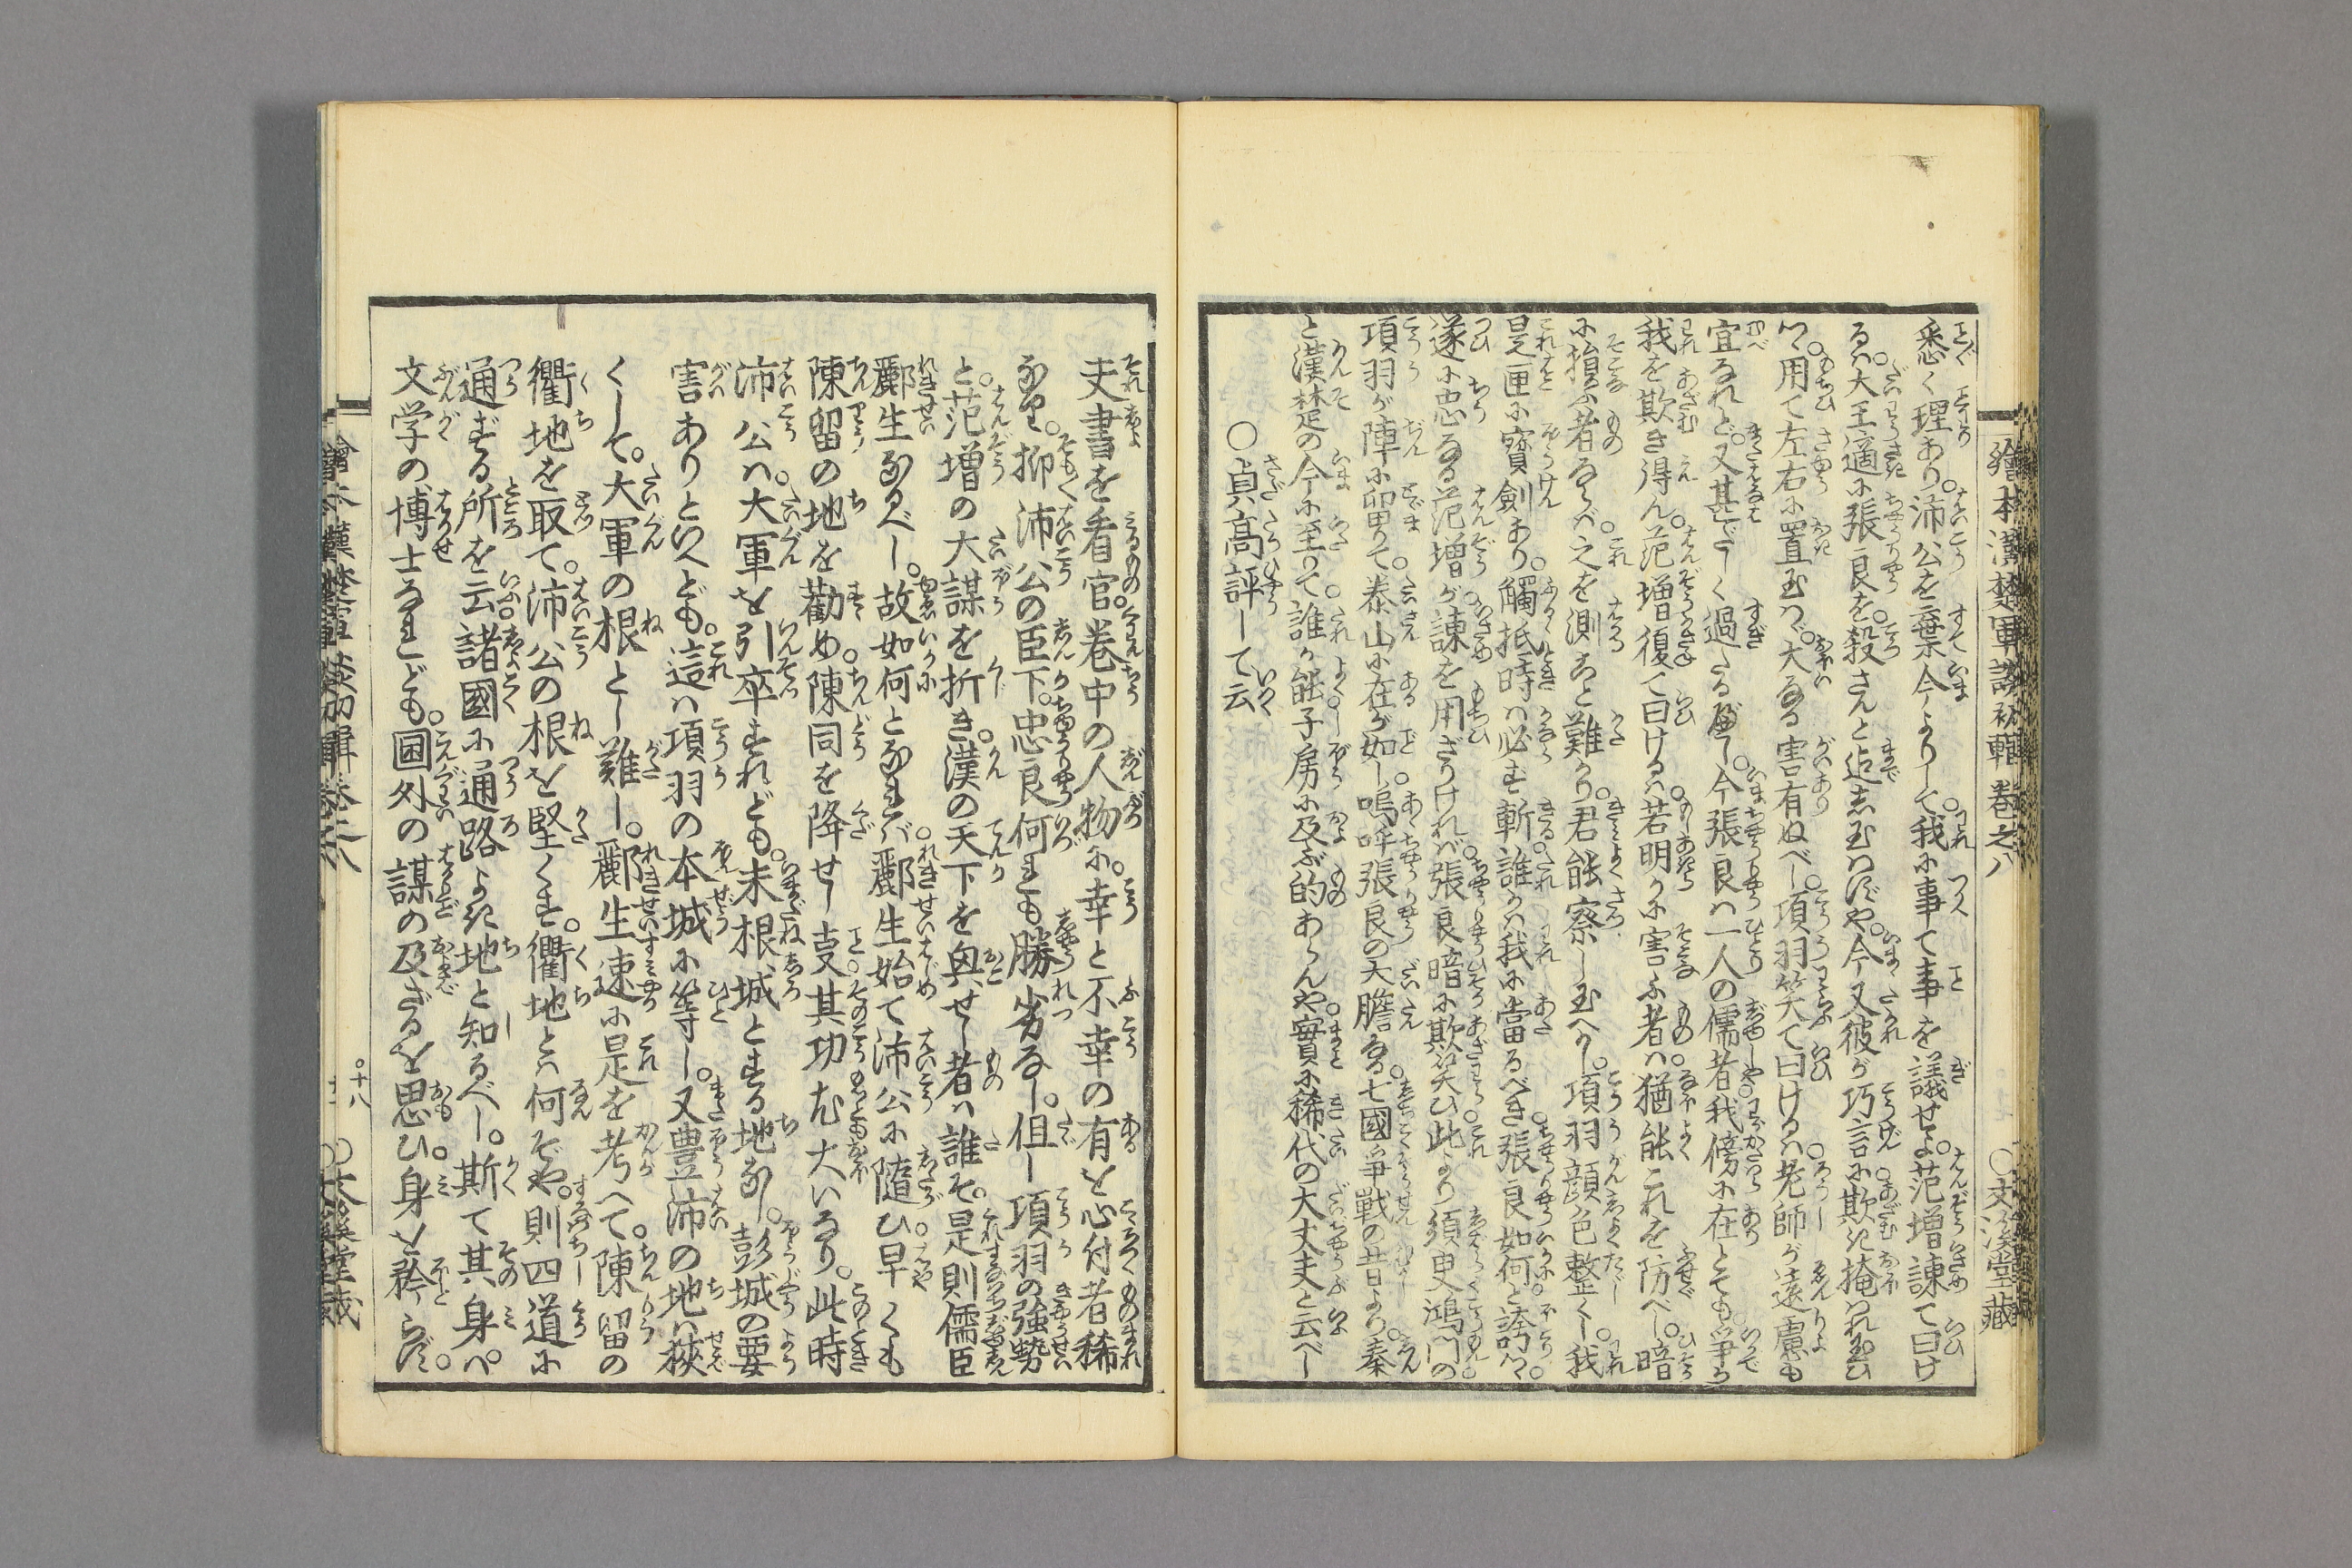 繪本漢楚軍談初輯 巻之八 ○文溪堂藏
悉く理あり。沛公を棄今よりして我に事て事を議せよ。范増諌て曰け
るハ。大王適に張良を殺さんと迄志玉はずや。今又彼が巧言に欺き掩はれ玉ひ
つゝ。用て左右に置玉はゞ。大なる害有ぬべし。項羽笑て曰けるハ。老師が遠慮も
宜なれど。又甚だしく過たる
今張良ハ一人の儒者我傍に在とても。争か
我を欺き得ん。范増復て曰けるハ。若明かに害ふ者ハ。猶能これを防べし。暗
に損ふ者ならバ。之を測こと難かり。君能察し玉へかし。項羽顔色整くし。我
是匣に寳劍あり。觸抵時ハ必ず斬。誰かハ我に當るべき張良如何と誇つゝ。
遂に忠なる范増が。諌を用ざりければ。張良暗に欺笑ひ。此より須臾鴻門の
項羽が陣に留りて。泰山に在が如し。嗚呼張良の大膽なる。七國争戦の昔より。秦
と漢楚の今に至りて。誰か能子房に及ぶ的あらんや。實に稀代の大丈夫と云べし
○貞高評して云
夫書を看官。巻中の人物に。幸と不幸の有を心付者稀
なり。抑沛公の臣下。忠良何れも勝劣なし。但し項羽の強勢
と。范増の大謀を折き。漢の天下を與せし者ハ誰ぞ。是則儒臣
酈生なるべし。故如何となれば。酈生始て沛公に隨ひ早くも
陳留の地を勸め。陳同を降せし事。其功尤大いなり。此時
沛公ハ。大軍を引卒すれども。未根城とする地なし。彭城の要
害ありといへども。這ハ項羽の本城に等し。又豊沛の地ハ狹
くして。大軍の根とし難し。酈生速に是を考へて。陳留の
衢地を取て。沛公の根を堅くす。衢地とハ何ぞや。則四道に
通ずる所を云。諸國に通路よき地と知るべし。斯て其身ハ
文学の博士なれども。圃外の謀の及ざるを思ひ。身を矜らず。
繪本漢楚軍談初輯巻之八 ○十八 ○文溪堂藏